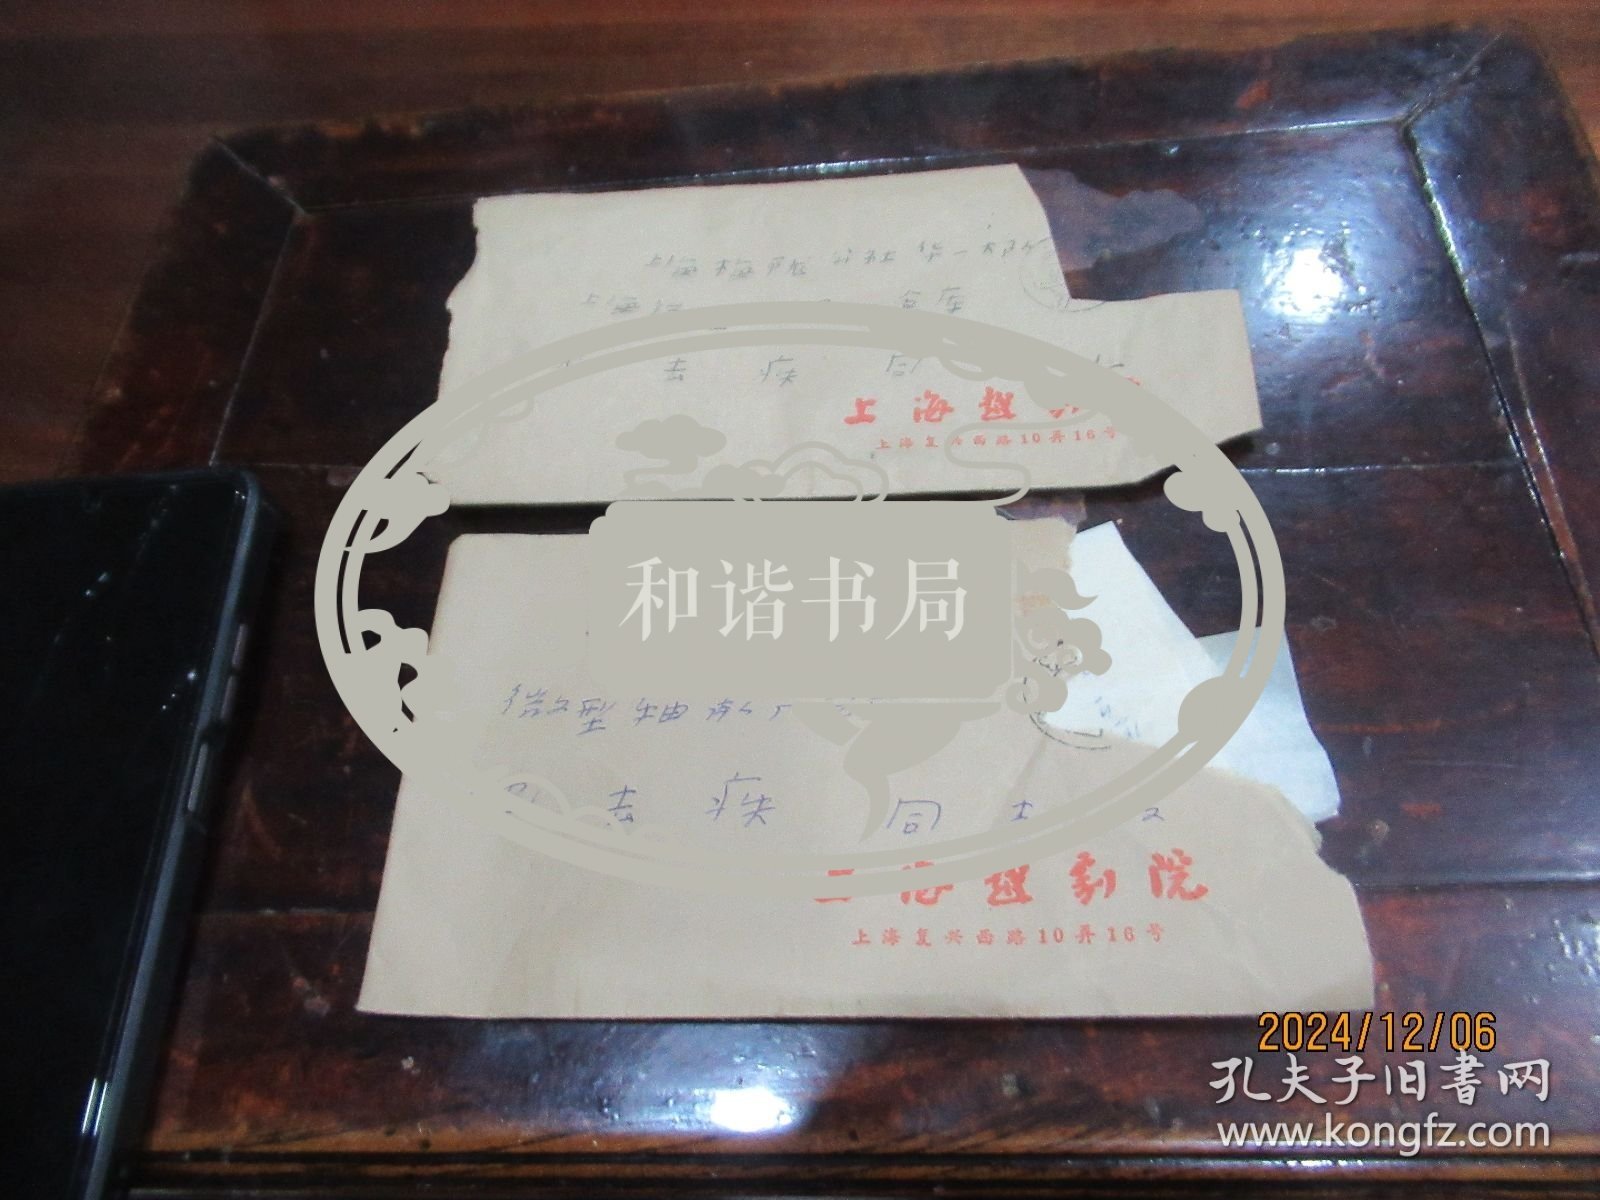 上海梅陇公社华一大队
上海 仓库
去疾 同
上海越剧
上海复兴西路10弄16号
和谐书局
微型轴承厂
去疾 同
上海越剧院
上海复兴西路10弄16号
2024/12/06
孔夫子旧書网
www.kongfz.com